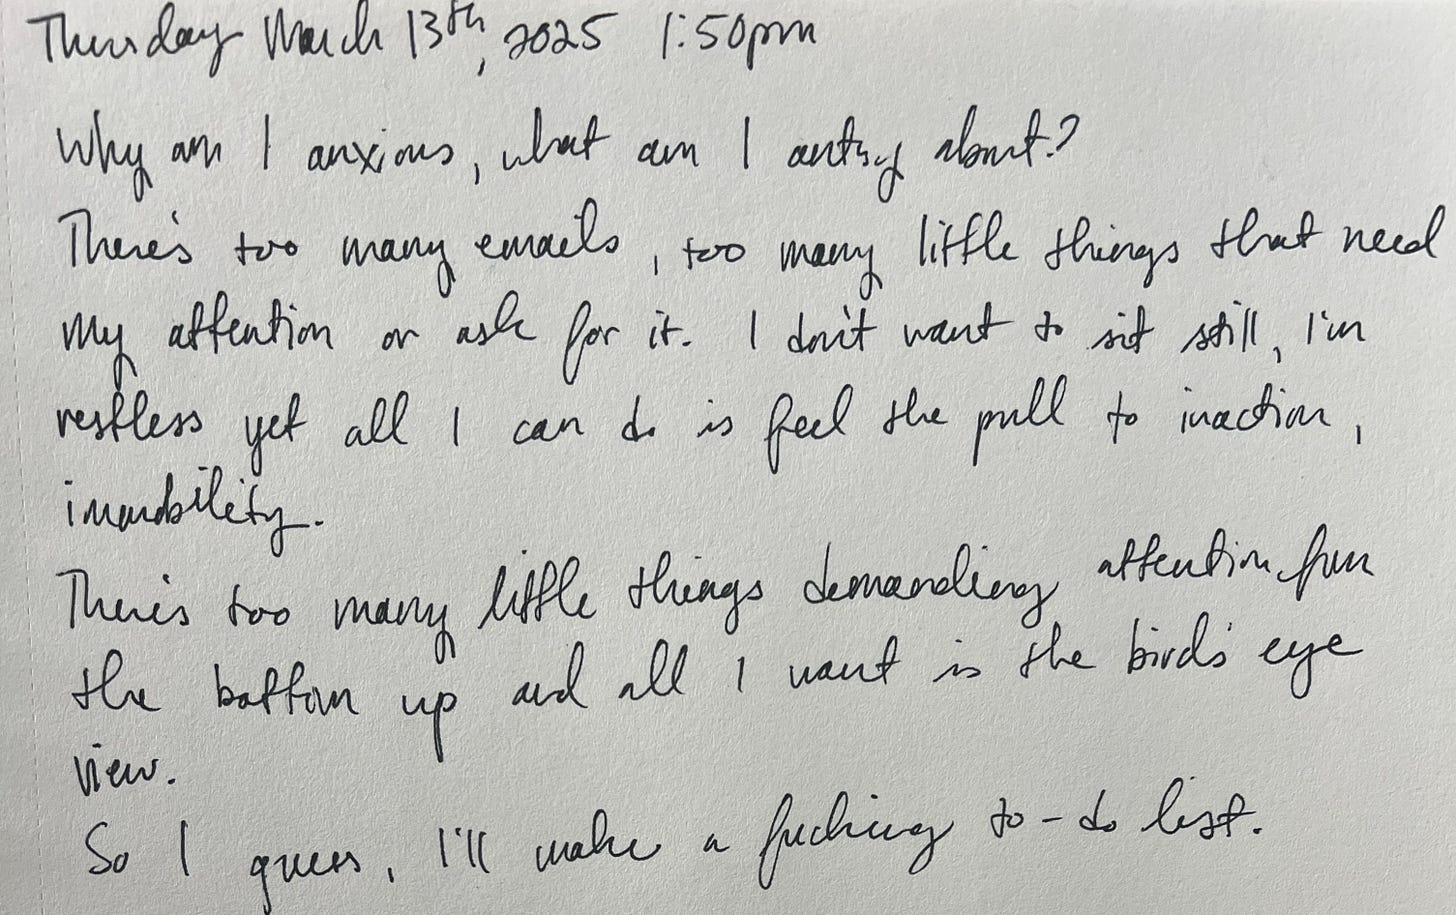 Thursday March 13th, 2025 1:50pm
Why am I anxious, what am I antsy about?
There's too many emails, too many little things that need
my attention or ask for it. I don't want to sit still, I'm
restless yet all I can do is feel the pull to inaction,
immobility.
There's too many little things demanding attention from
the bottom up and all I want is the bird's eye
view.
So I guess, I'll make a fucking to-do list.